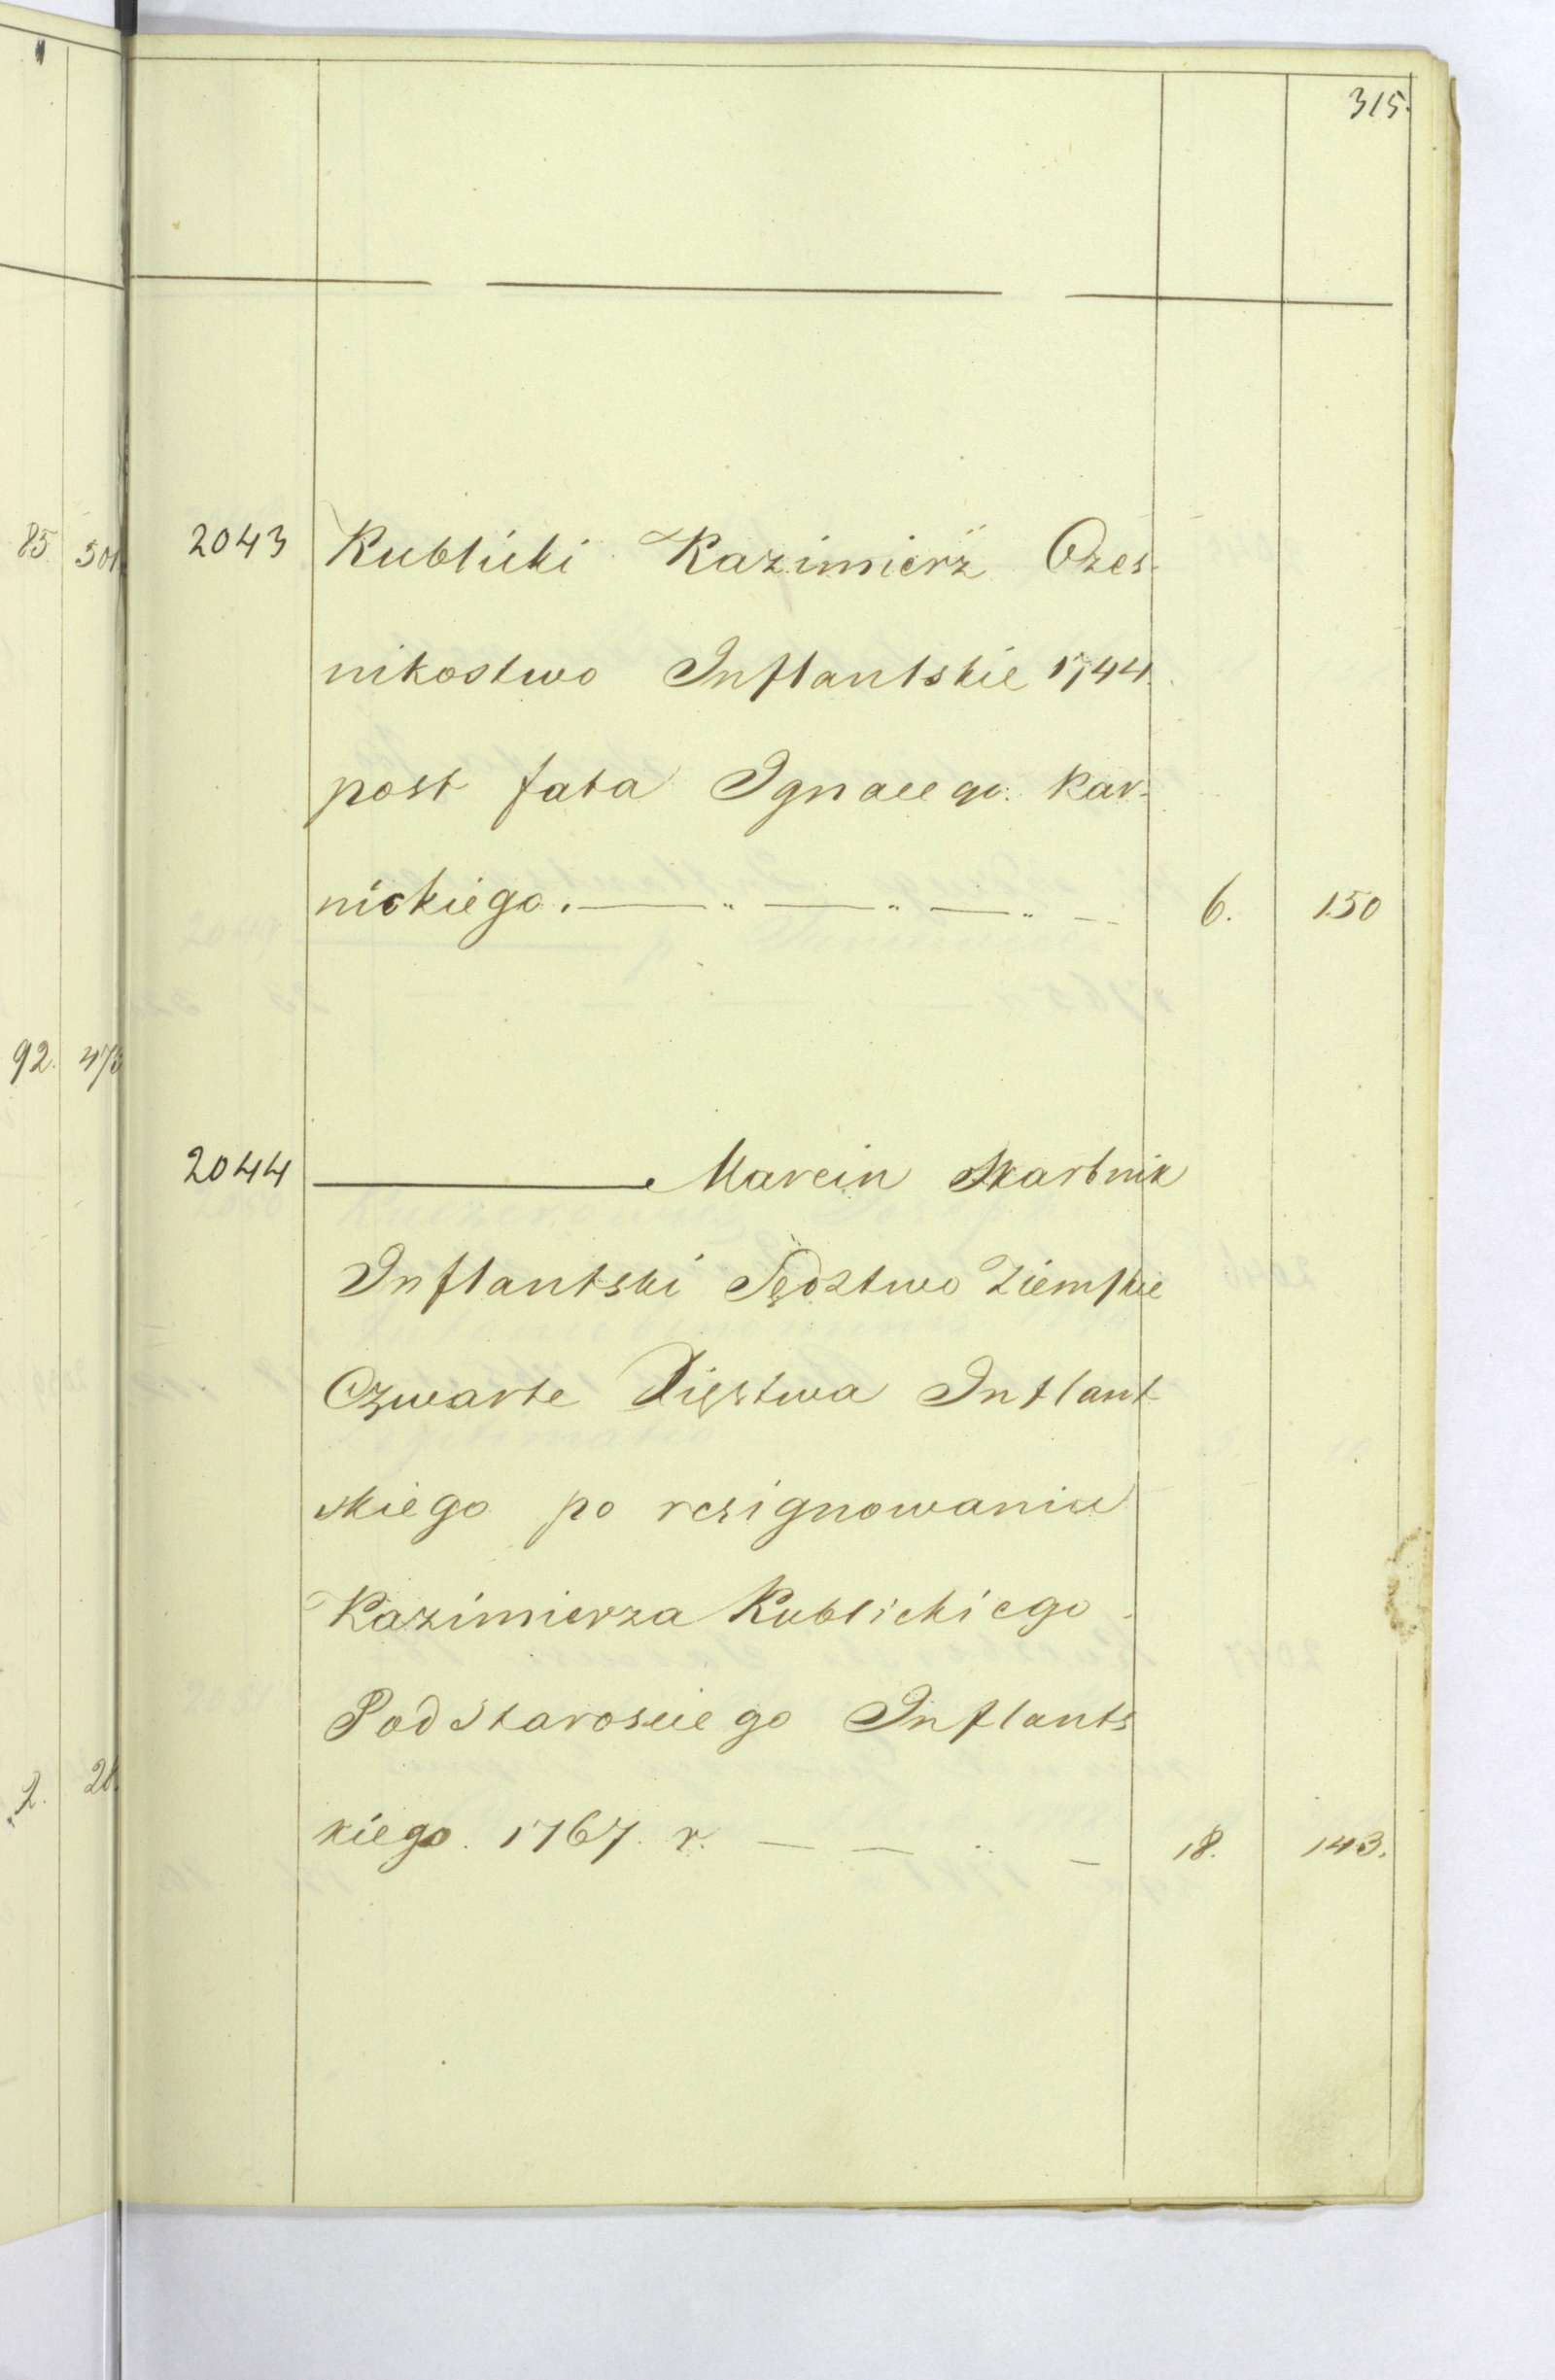 315.
85 501
2043 Kublicki Kazimierz Czes-
nikostwo Inflantskie 1744.
post fata Ignacego Kar-
nickiego. 6. 150
92. 473
2044 Marcin Skarbnik
Inflantski Sędztwo Ziemskie
Czwarte Xięstwa Inflant
skiego po resignowaniu
Kazimierza Kublickiego
Podstarosciego Inflants
2. 28.
kiego. 1767. r. 18. 143.